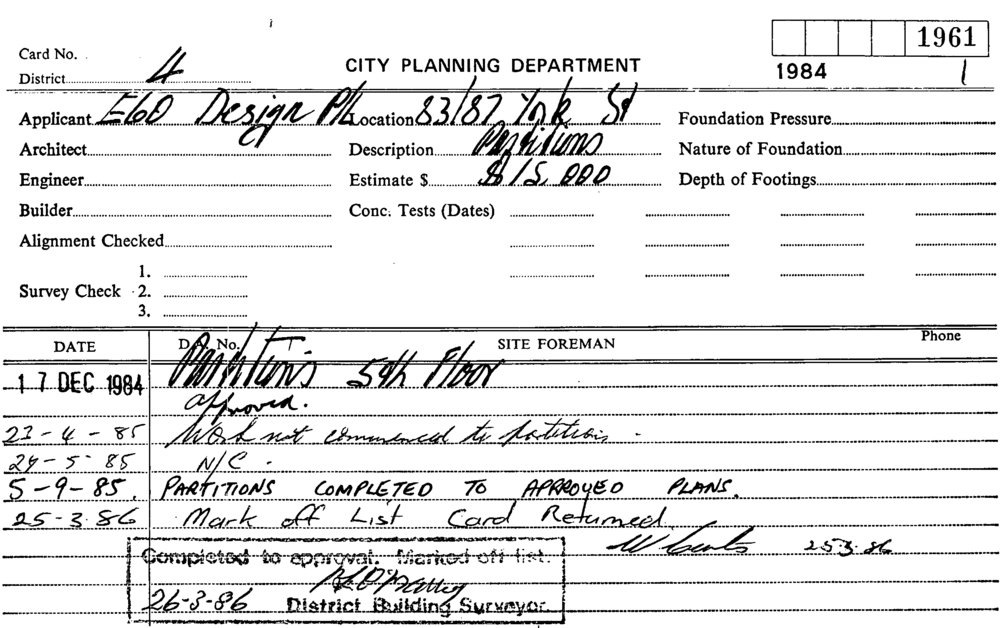 1961
Card No.
District 4
CITY PLANNING DEPARTMENT
1984 1
Applicant EGO Design P/L Location 83/87 York St Foundation Pressure
Architect Description Partitions Nature of Foundation
Engineer Estimate $ $15,000 Depth of Footings
Builder Conc. Tests (Dates)
Alignment Checked
1.
Survey Check 2.
3.
DATE D.A. No. SITE FOREMAN Phone
17 DEC 1984 Partitions 5th Floor
approved.
23-4-85 Work not commenced to partitions.
24-5-85 N/C.
5-9-85. PARTITIONS COMPLETED TO APPROVED PLANS.
25-3-86 Mark off List Card Returned.
25-3-86
Completed to approval. Marked off list.
26-3-86 District Building Surveyor.